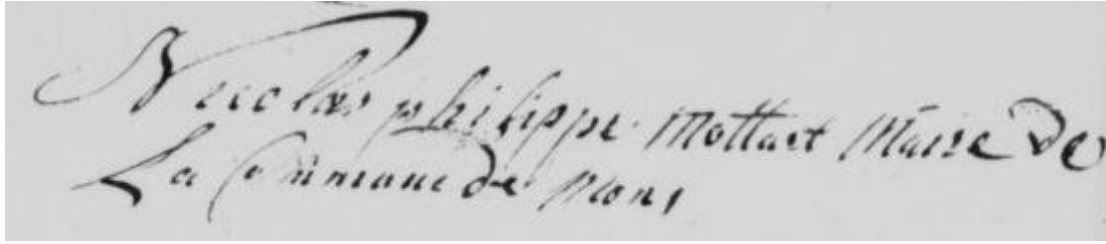 Nicolas philippe Mottart Maire de
La Commune de mons